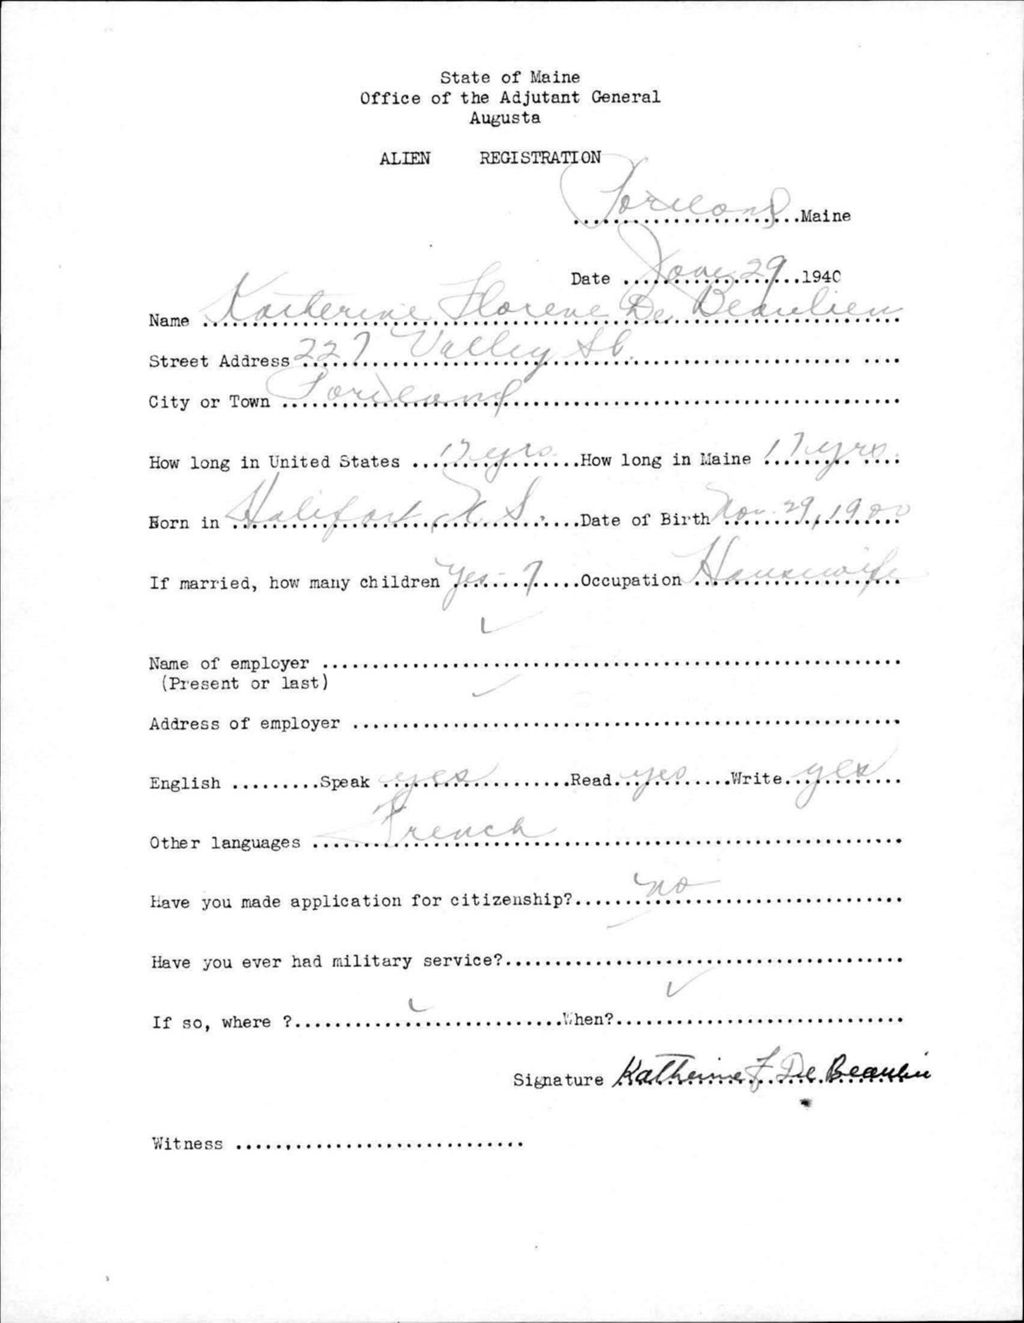 State of Maine
Office of the Adjutant General
Augusta
ALIEN REGISTRATION
Portland Maine
Date June 29 1940
Name Katherine Florene De Beaulieu
Street Address 227 Valley St.
City or Town Portland
How long in United States 17 yrs How long in Maine 17 yrs
Born in Halifax, N. S. Date of Birth Nov. 29, 1900
If married, how many children yes - 7 Occupation Housewife
Name of employer
(Present or last)
Address of employer
English Speak yes Read yes Write yes
Other languages French
Have you made application for citizenship? no
Have you ever had military service?
If so, where ? When?
Signature Katherine F. De Beaulieu
Witness